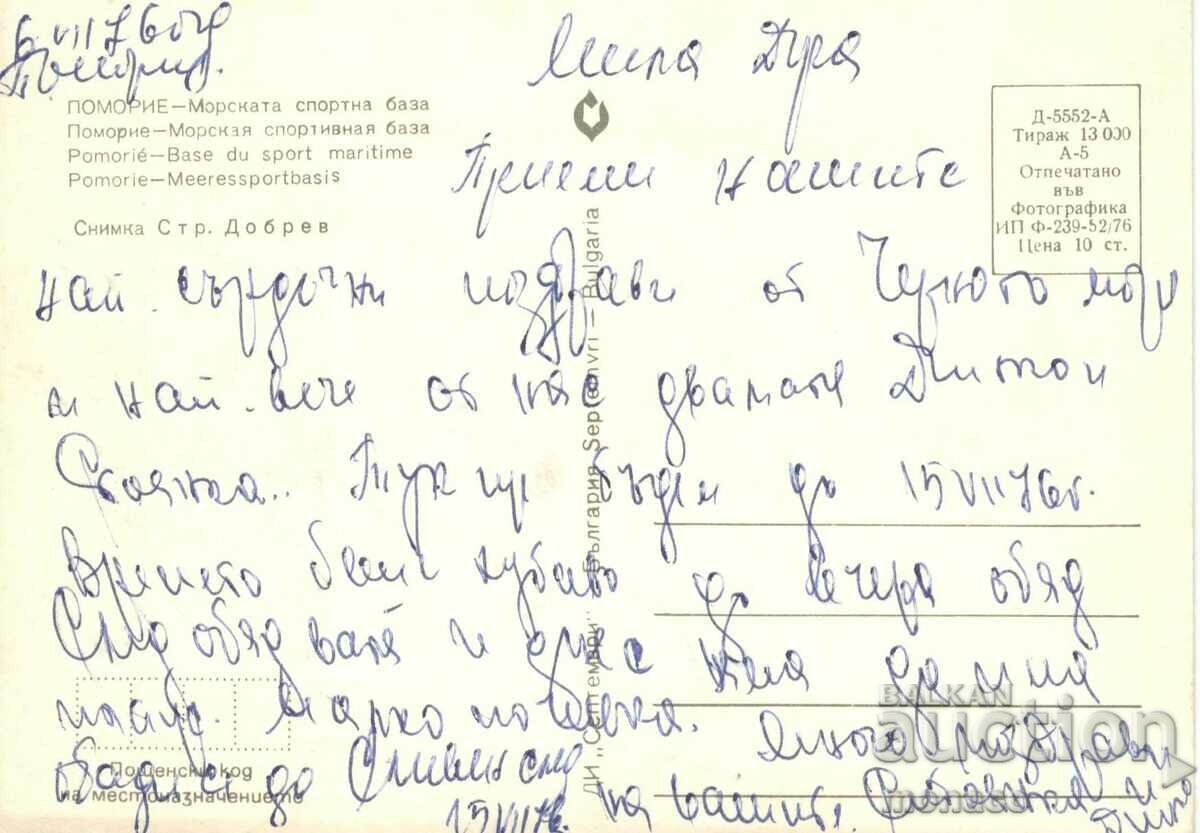 6 VII 76 год
Мила
ПОМОРИЕ—Морската спортна база
Поморие—Морская спортивная база
Pomorié—Base du sport maritime
Pomorie—Meeressportbasis
Снимка Стр. Добрев
Д-5552-А
Тираж 13 000
А-5
Отпечатано
във
Фотографика
ИП Ф-239-52/76
Цена 10 ст.
Приеми нашите
най сърдечни поздрави от Черното море
и най-вече от нас двамата
Стоянка.. Тук ще бъдем до 15 VII 76г.
времето беше хубаво до вечера обяд
След обяд валя и днес
пак.
до Сливен след
15 VII 76.
поздрави
на вашите.
ДИ „Септември" — България Septemvri — Bulgaria
Пощенски код
на местоназначението
BALKAN
auction